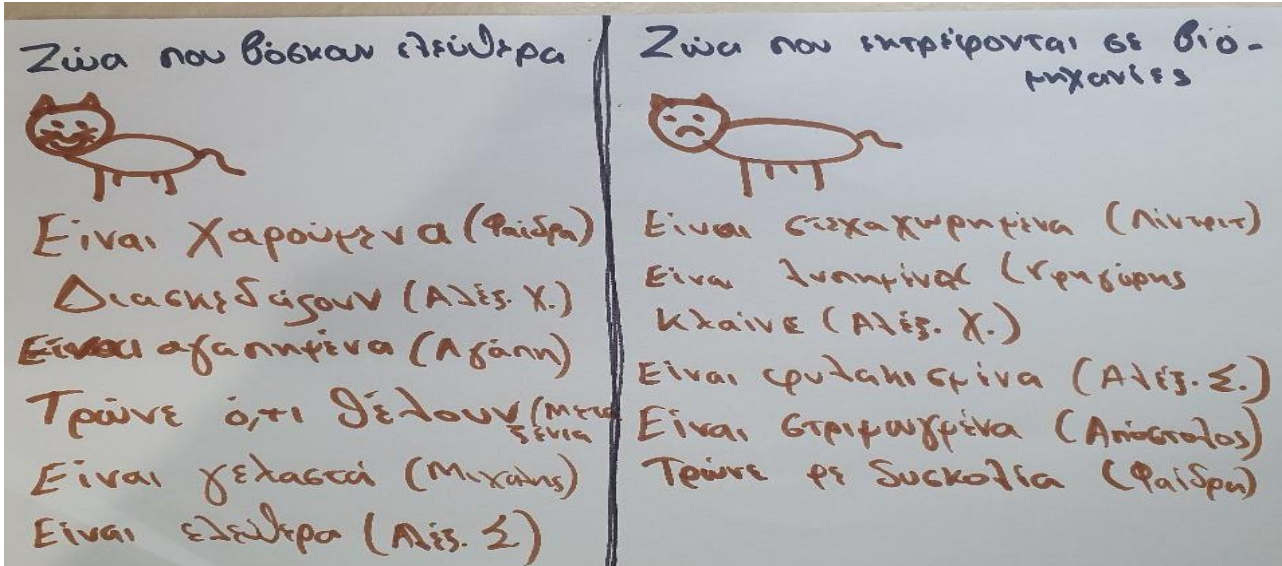 Ζώα που βόσκαν ελεύθερα
Είναι Χαρούμενα (Φαίδρα)
Διασκεδάζουν (Αλέξ. Χ.)
Είναι αγαπημένα (Αγάπη)
Τρώνε ό,τι θέλουν (Μετα
ξένια
Είναι γελαστά (Μιχάλης)
Είναι ελεύθερα (Αλέξ. Σ)
Ζώα που εκτρέφονται σε βιο-
μηχανίες
Είναι στεχαχωρημένα (Λίντριτ)
Είναι λυπημένα (Γρηγόρης
Κλαίνε (Αλέξ. Χ.)
Είναι φυλακισμένα (Αλέξ. Σ.)
Είναι στριμωγμένα (Απόστολος)
Τρώνε με δυσκολία (Φαίδρα)